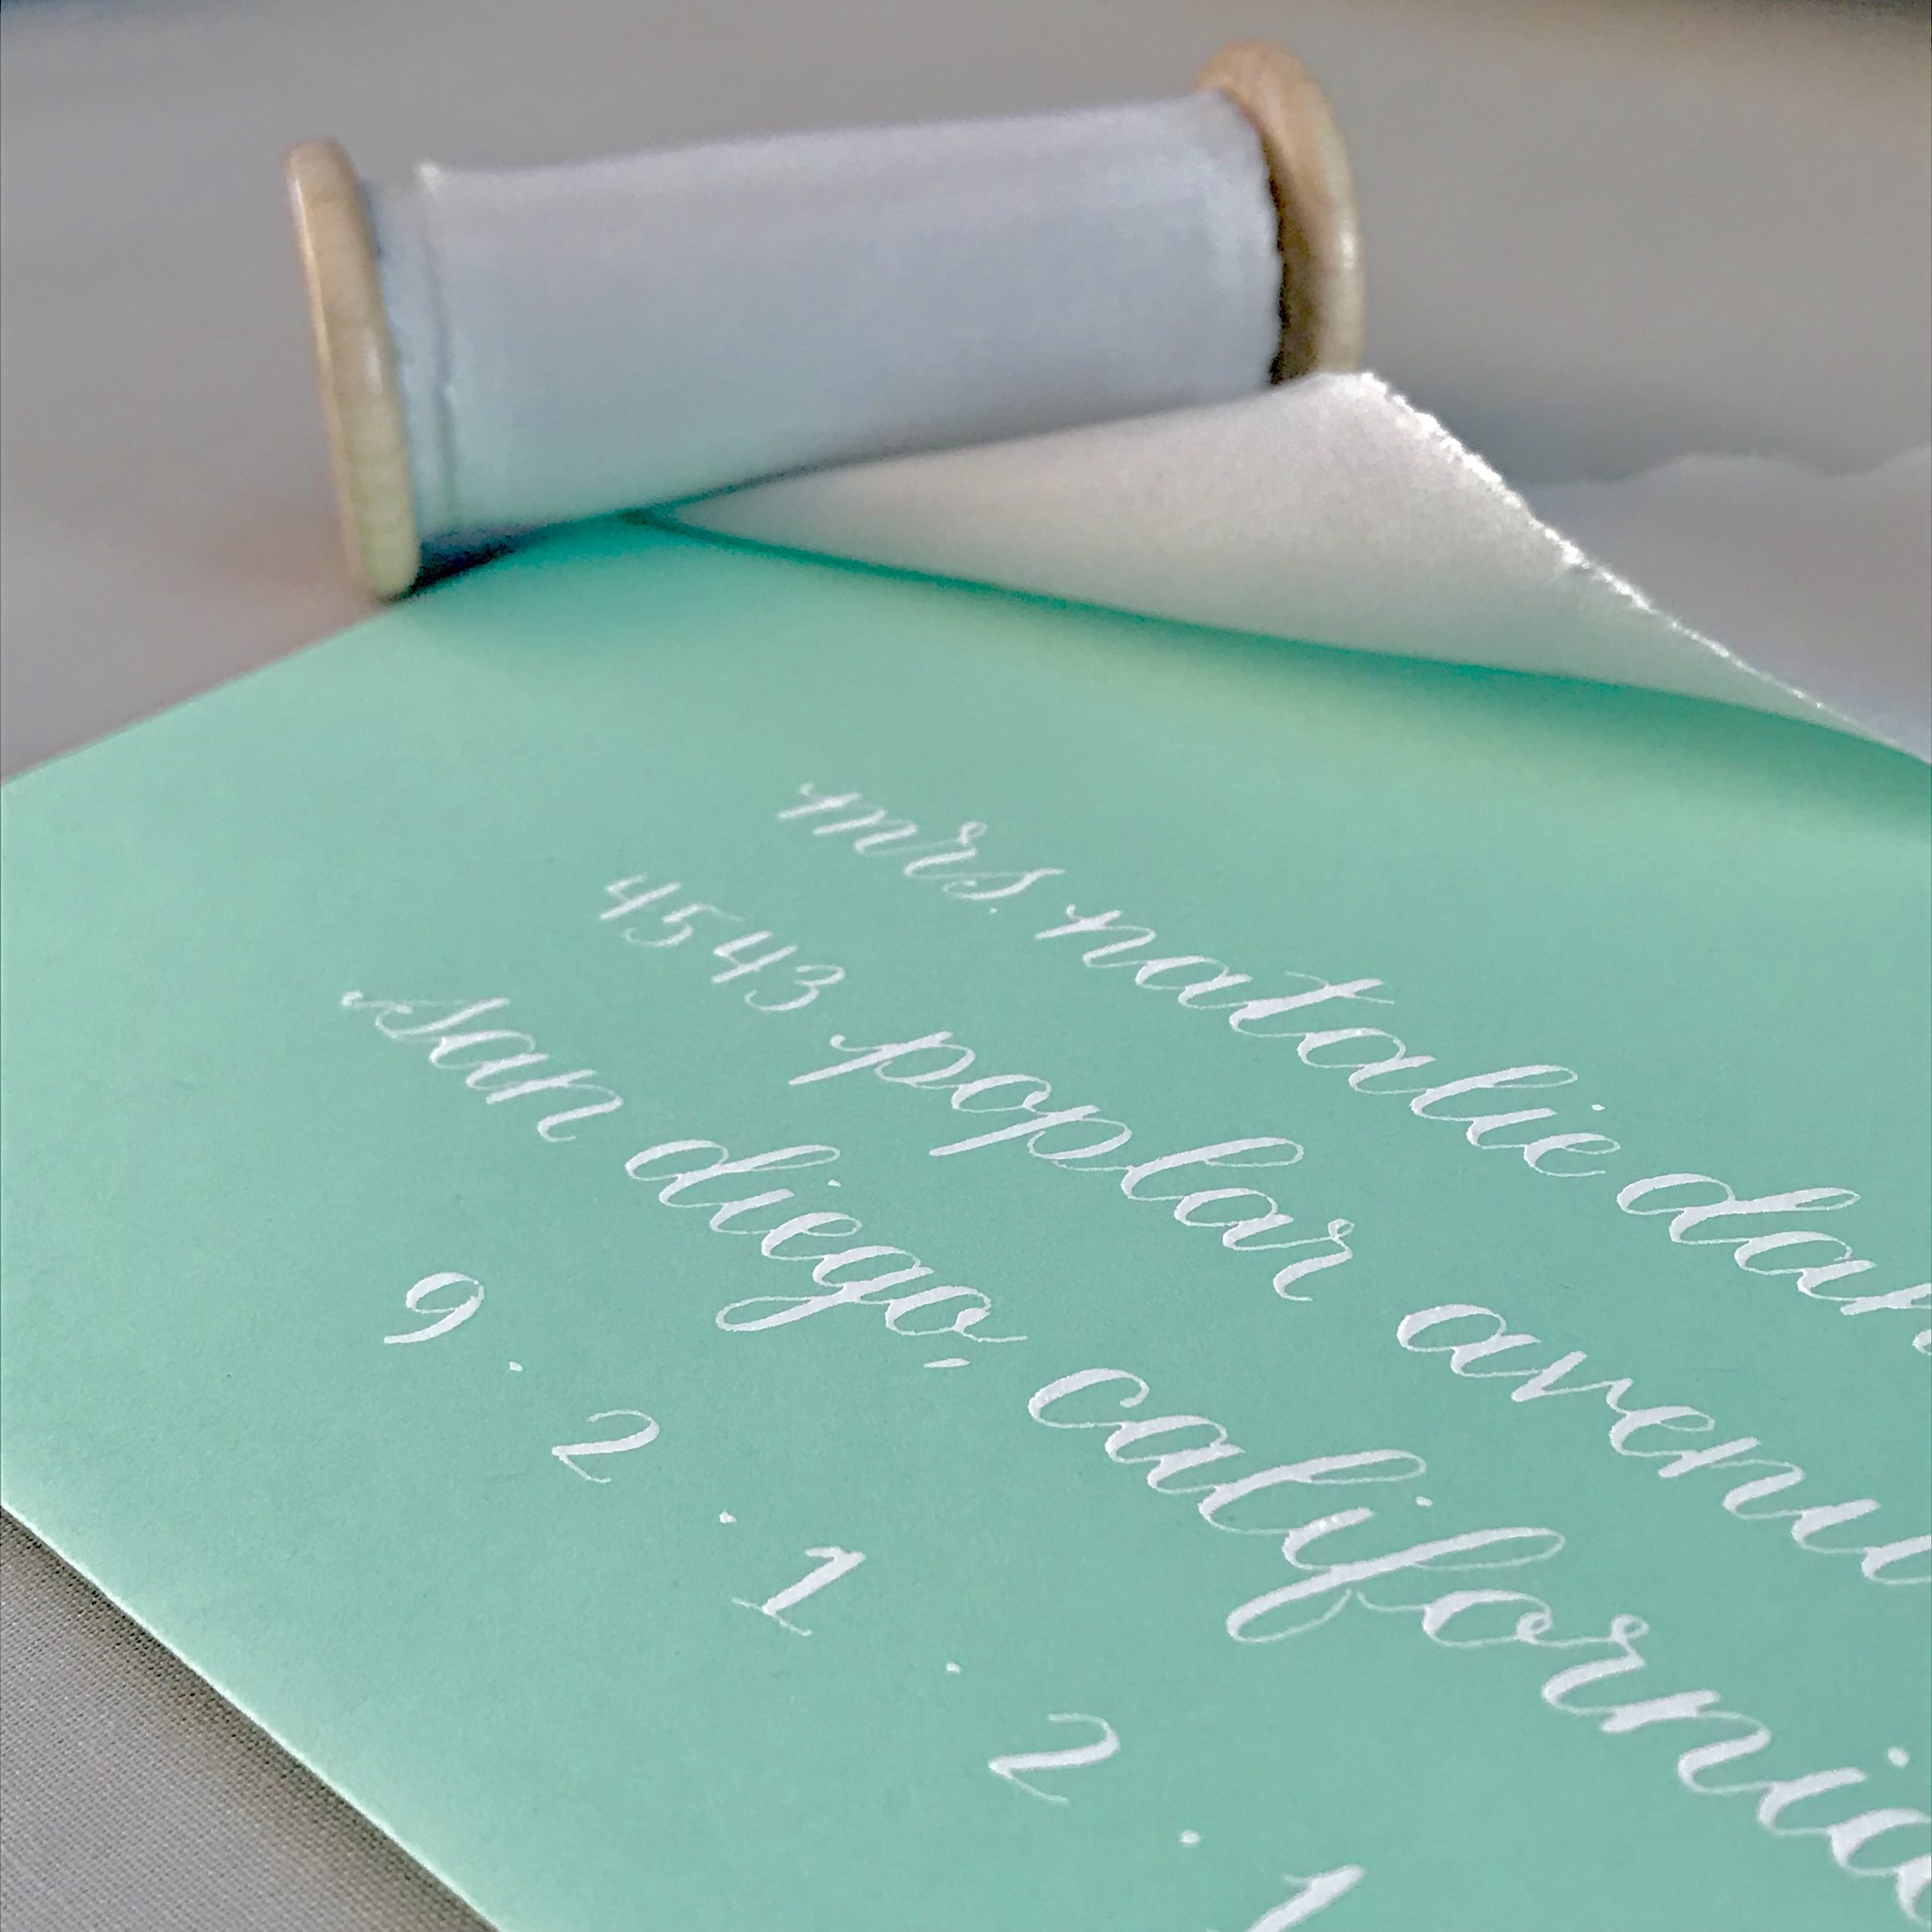 mrs. natalie dan
4543 poplar avenu
san diego, california
9 . 2 . 1 . 2 . 1